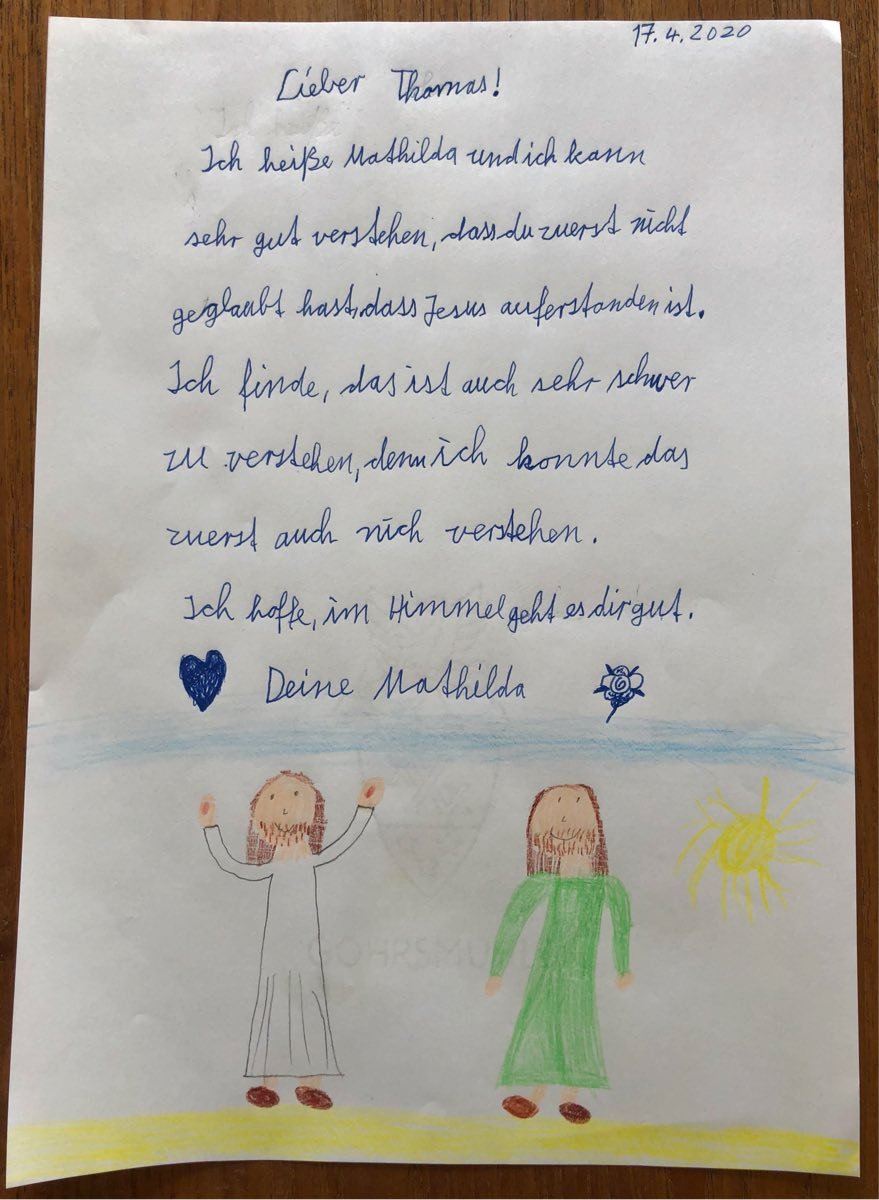 17.4.2020
Lieber Thomas!
Ich heiße Mathilda und ich kann
sehr gut verstehen, dass du zuerst nicht
geglaubt hast, dass Jesus auferstanden ist.
Ich finde, das ist auch sehr schwer
zu verstehen, denn ich konnte das
zuerst auch nich verstehen.
Ich hoffe, im Himmel geht es dir gut.
Deine Mathilda
GOHRSMÜHLE